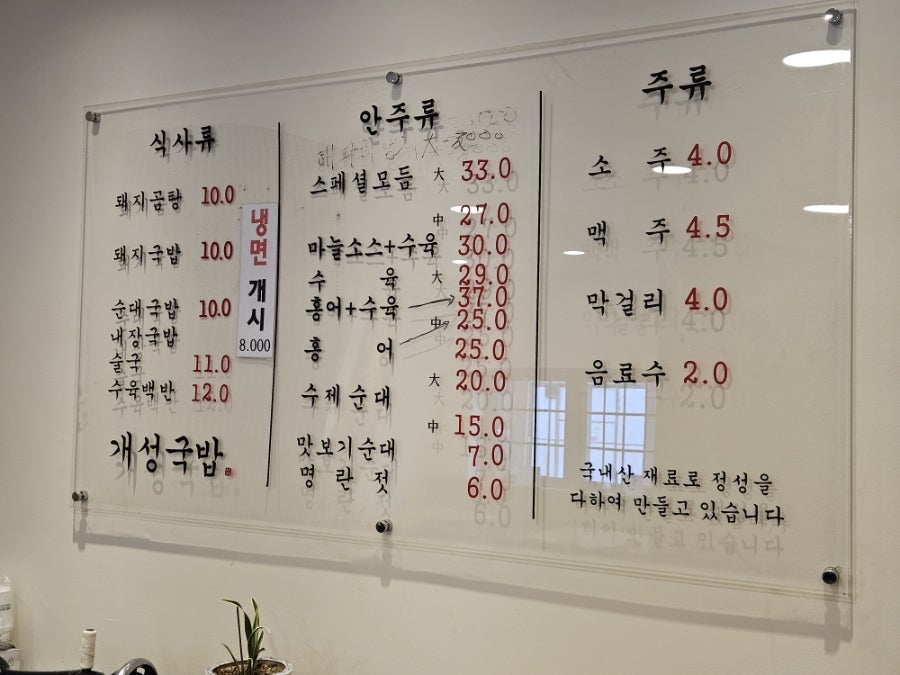 식사류
돼지곰탕 10.0
돼지국밥 10.0
순대국밥 10.0
내장국밥
술국 11.0
수육백반 12.0
개성국밥
냉면 개시
8.000
안주류
大
스페셜모듬 大 33.0
中 27.0
마늘소스+수육 30.0
수 육 大 29.0
홍어+수육 37.0
中 25.0
홍 어 25.0
수제순대 大 20.0
中 15.0
맛보기순대 7.0
명 란 젓 6.0
주류
소 주 4.0
맥 주 4.5
막걸리 4.0
음료수 2.0
국내산 재료로 정성을
다하여 만들고 있습니다